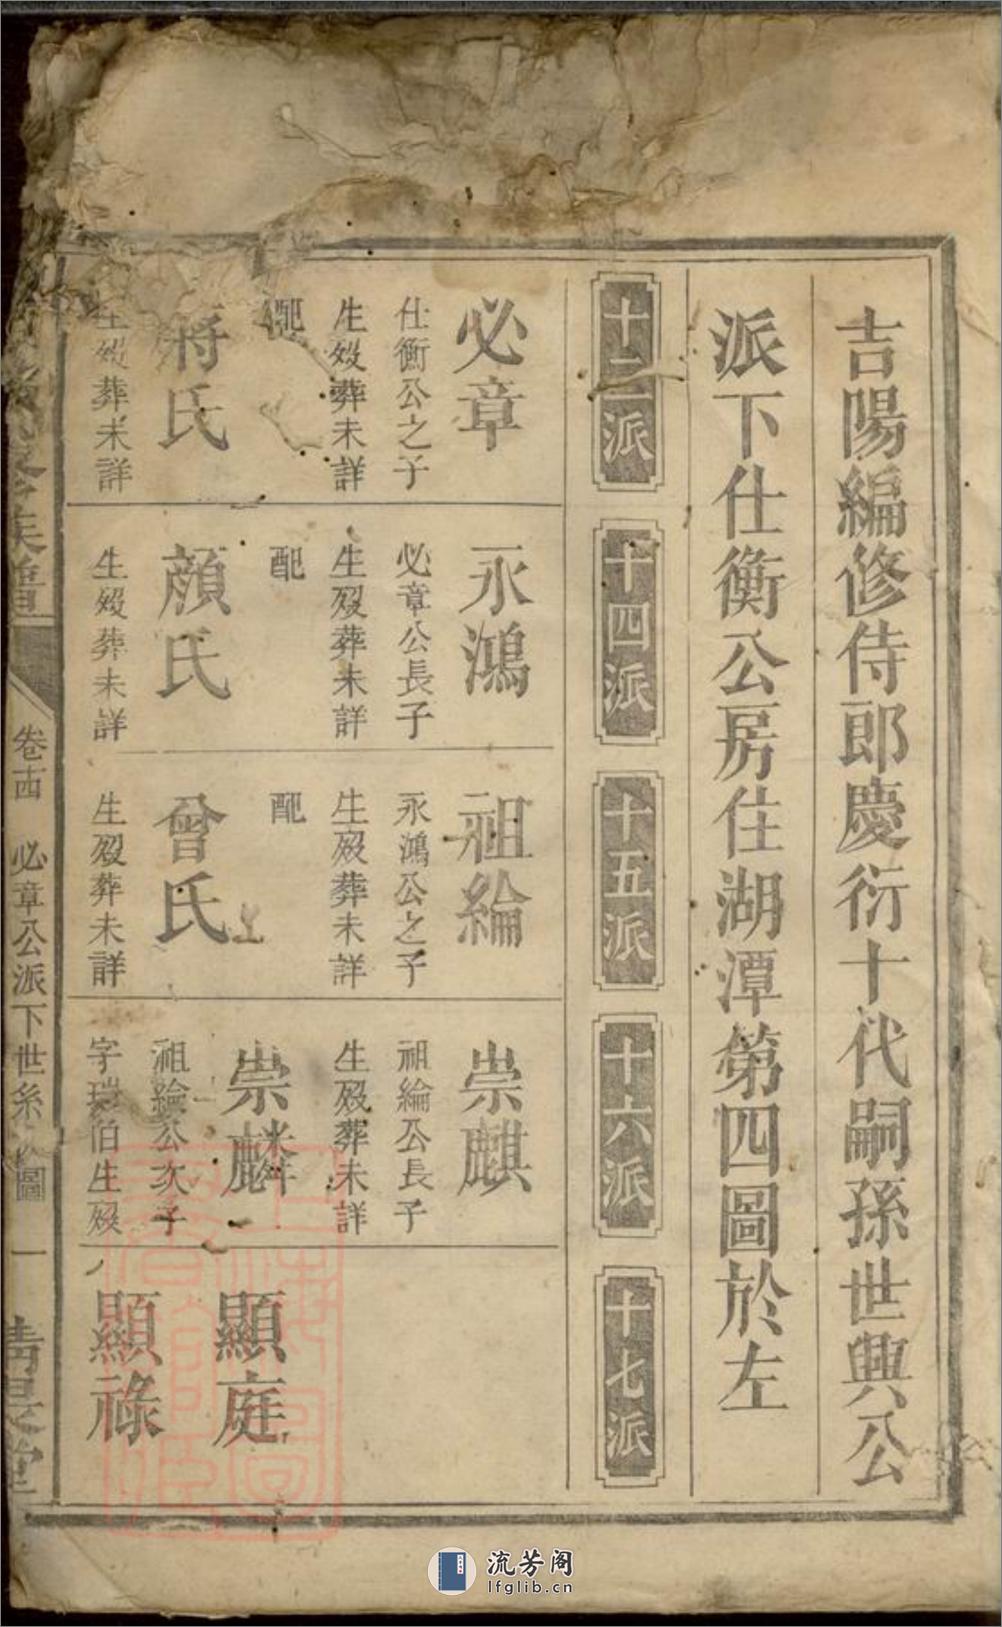 吉陽編修侍郎慶衍十代嗣孫世興公
派下仕衡公房住湖潭第四圖於左
十三派
十四派
十五派
十六派
十七派
必章
仕衡公之子
生歿葬未詳
配
蔣氏
生歿葬未詳
永鴻
必章公長子
生歿葬未詳
配
顏氏
生歿葬未詳
祖綸
永鴻公之子
生歿葬未詳
配
曾氏
生歿葬未詳
崇麒
祖綸公長子
生歿葬未詳
崇麟
祖綸公次子
字瑞伯生歿
顯庭
顯祿
族譜
卷十四 必章公派下世系 圖 一
堂
流芳阁
lfglib.cn